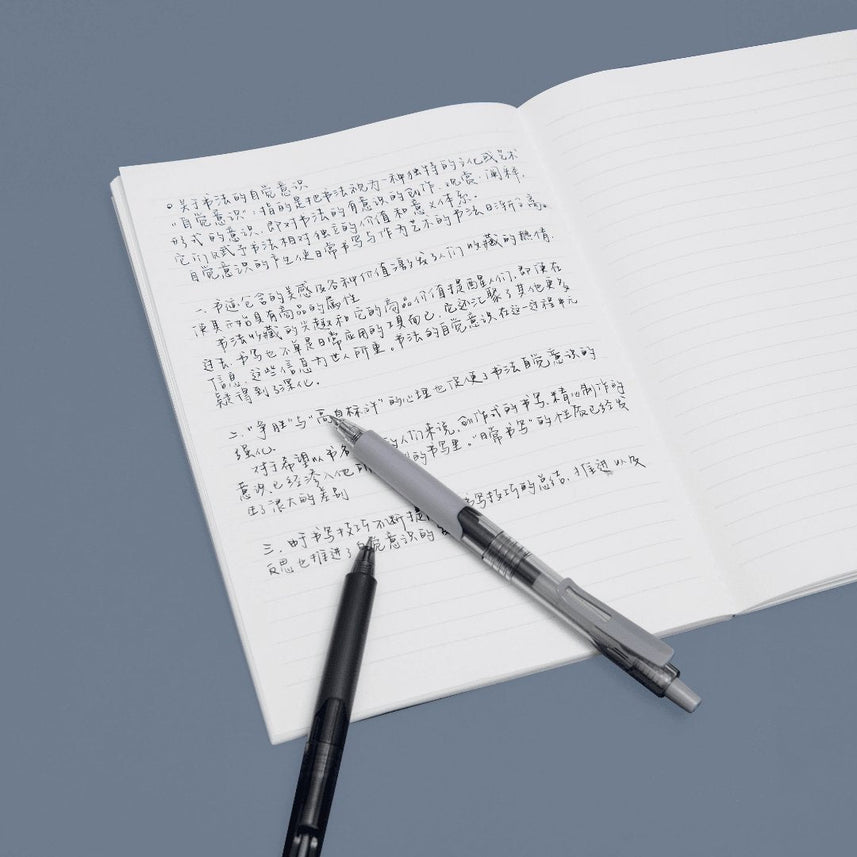 关于书法的自觉意识
“自觉意识”：指的是把书法视为一种独特的文化或艺术
形式的意识，即对书法的有意识的创作、观赏、阐释，
它们赋予书法相对独立的价值和意义体系。
自觉意识的产生使日常书写与作为艺术的书法日渐分离。
一、书迹包含的美感及各种价值激发了人们收藏的热情，
使其开始具有商品的属性
书法收藏的兴趣和它的商品价值提醒人们，即便在
过去，书写也不单是日常应用的工具而已，它还汇聚了其他更多
信息，这些信息为世人所重。书法的自觉意识在这一过程中无
疑得到了深化。
二、“争胜”与“高自标许”的心理也促使了书法自觉意识的
强化。
对于希望以书名的人们来说，创作式的书写、精心制作的
意识，已经渗入他的书写里。“日常书写”的性质已经发
生了很大的差别
三、由于书写技巧不断提书写技巧的总结、推进以及
反思也推进了自觉意识的